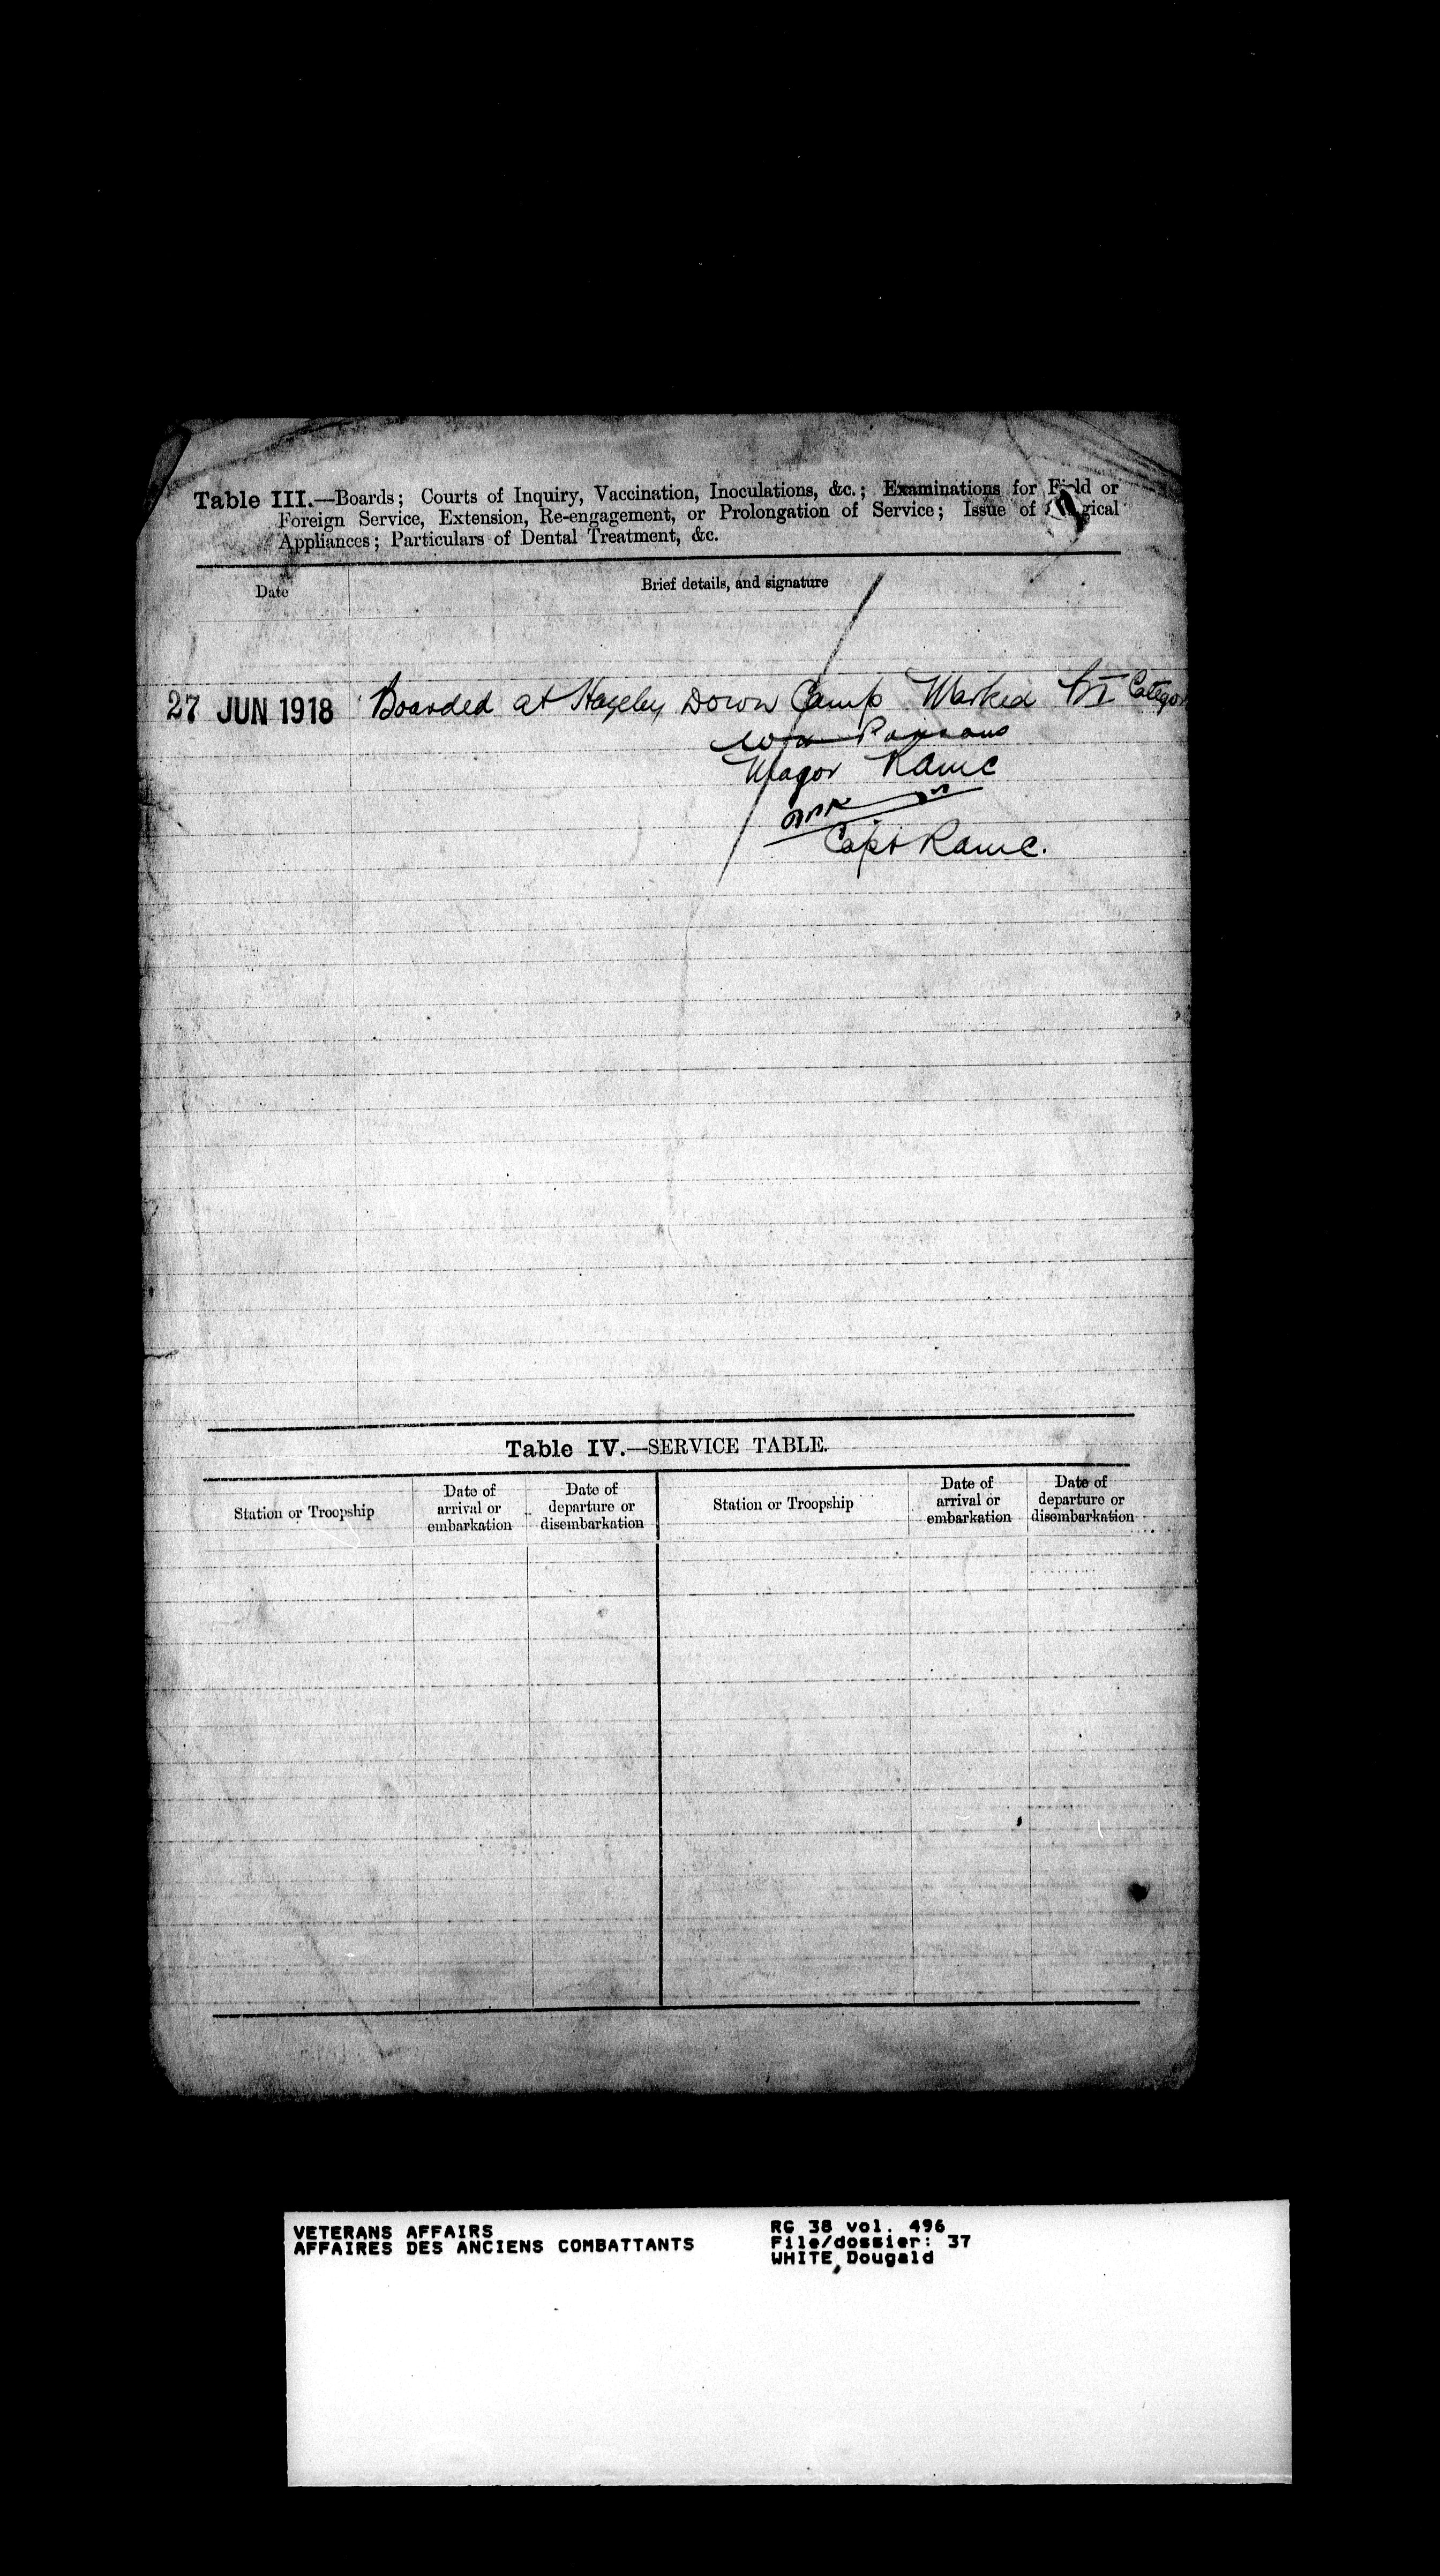 Table III.—Boards; Courts of Inquiry, Vaccination, Inoculations, &c.; Examinations for Field or
Foreign Service, Extension, Re-engagement, or Prolongation of Service; Issue of gical
Appliances; Particulars of Dental Treatment, &c.
Date
Brief details, and signature
27 JUN 1918 Boarded at Hazeley Down Camp Marked Categor
Parsons
Major RAMC
Capt RAMC.
Table IV.—SERVICE TABLE.
Station or Troopship
Date of
arrival or
embarkation
Date of
departure or
disembarkation
Station or Troopship
Date of
arrival or
embarkation
Date of
departure or
disembarkation
VETERANS AFFAIRS
AFFAIRES DES ANCIENS COMBATTANTS
RG 38 vol. 496
File/dossier: 37
WHITE, Dougald